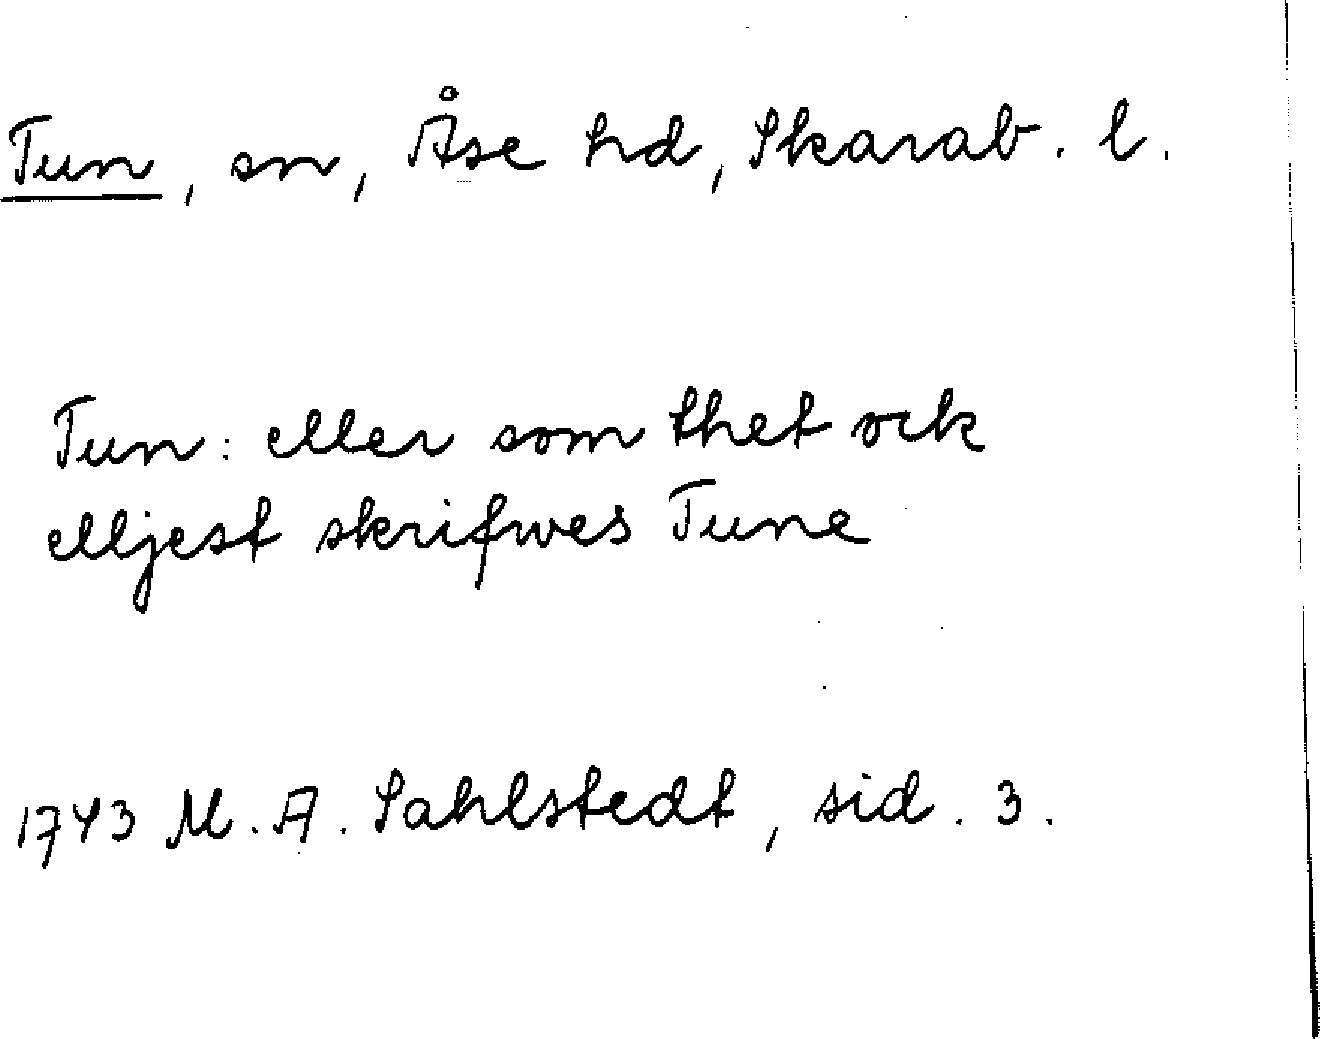 Tun, sn, Åse hd, Skarab. l.
Tun: eller som thet ock
elljest skrifwes Tune
1743 M. A. Sahlstedt, sid. 3.